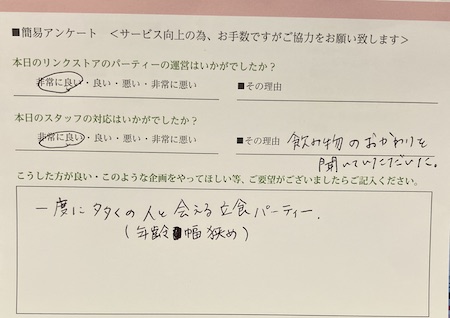 ■簡易アンケート ＜サービス向上の為、お手数ですがご協力をお願い致します＞
本日のリンクストアのパーティーの運営はいかがでしたか？
非常に良い・良い・悪い・非常に悪い ■その理由
本日のスタッフの対応はいかがでしたか？
非常に良い・良い・悪い・非常に悪い ■その理由 飲み物のおかわりを
聞いていただいた。
こうした方が良い・このような企画をやってほしい等、ご要望がございましたらご記入ください。
一度に多くの人と会える立食パーティー.
(年齢幅狭め)